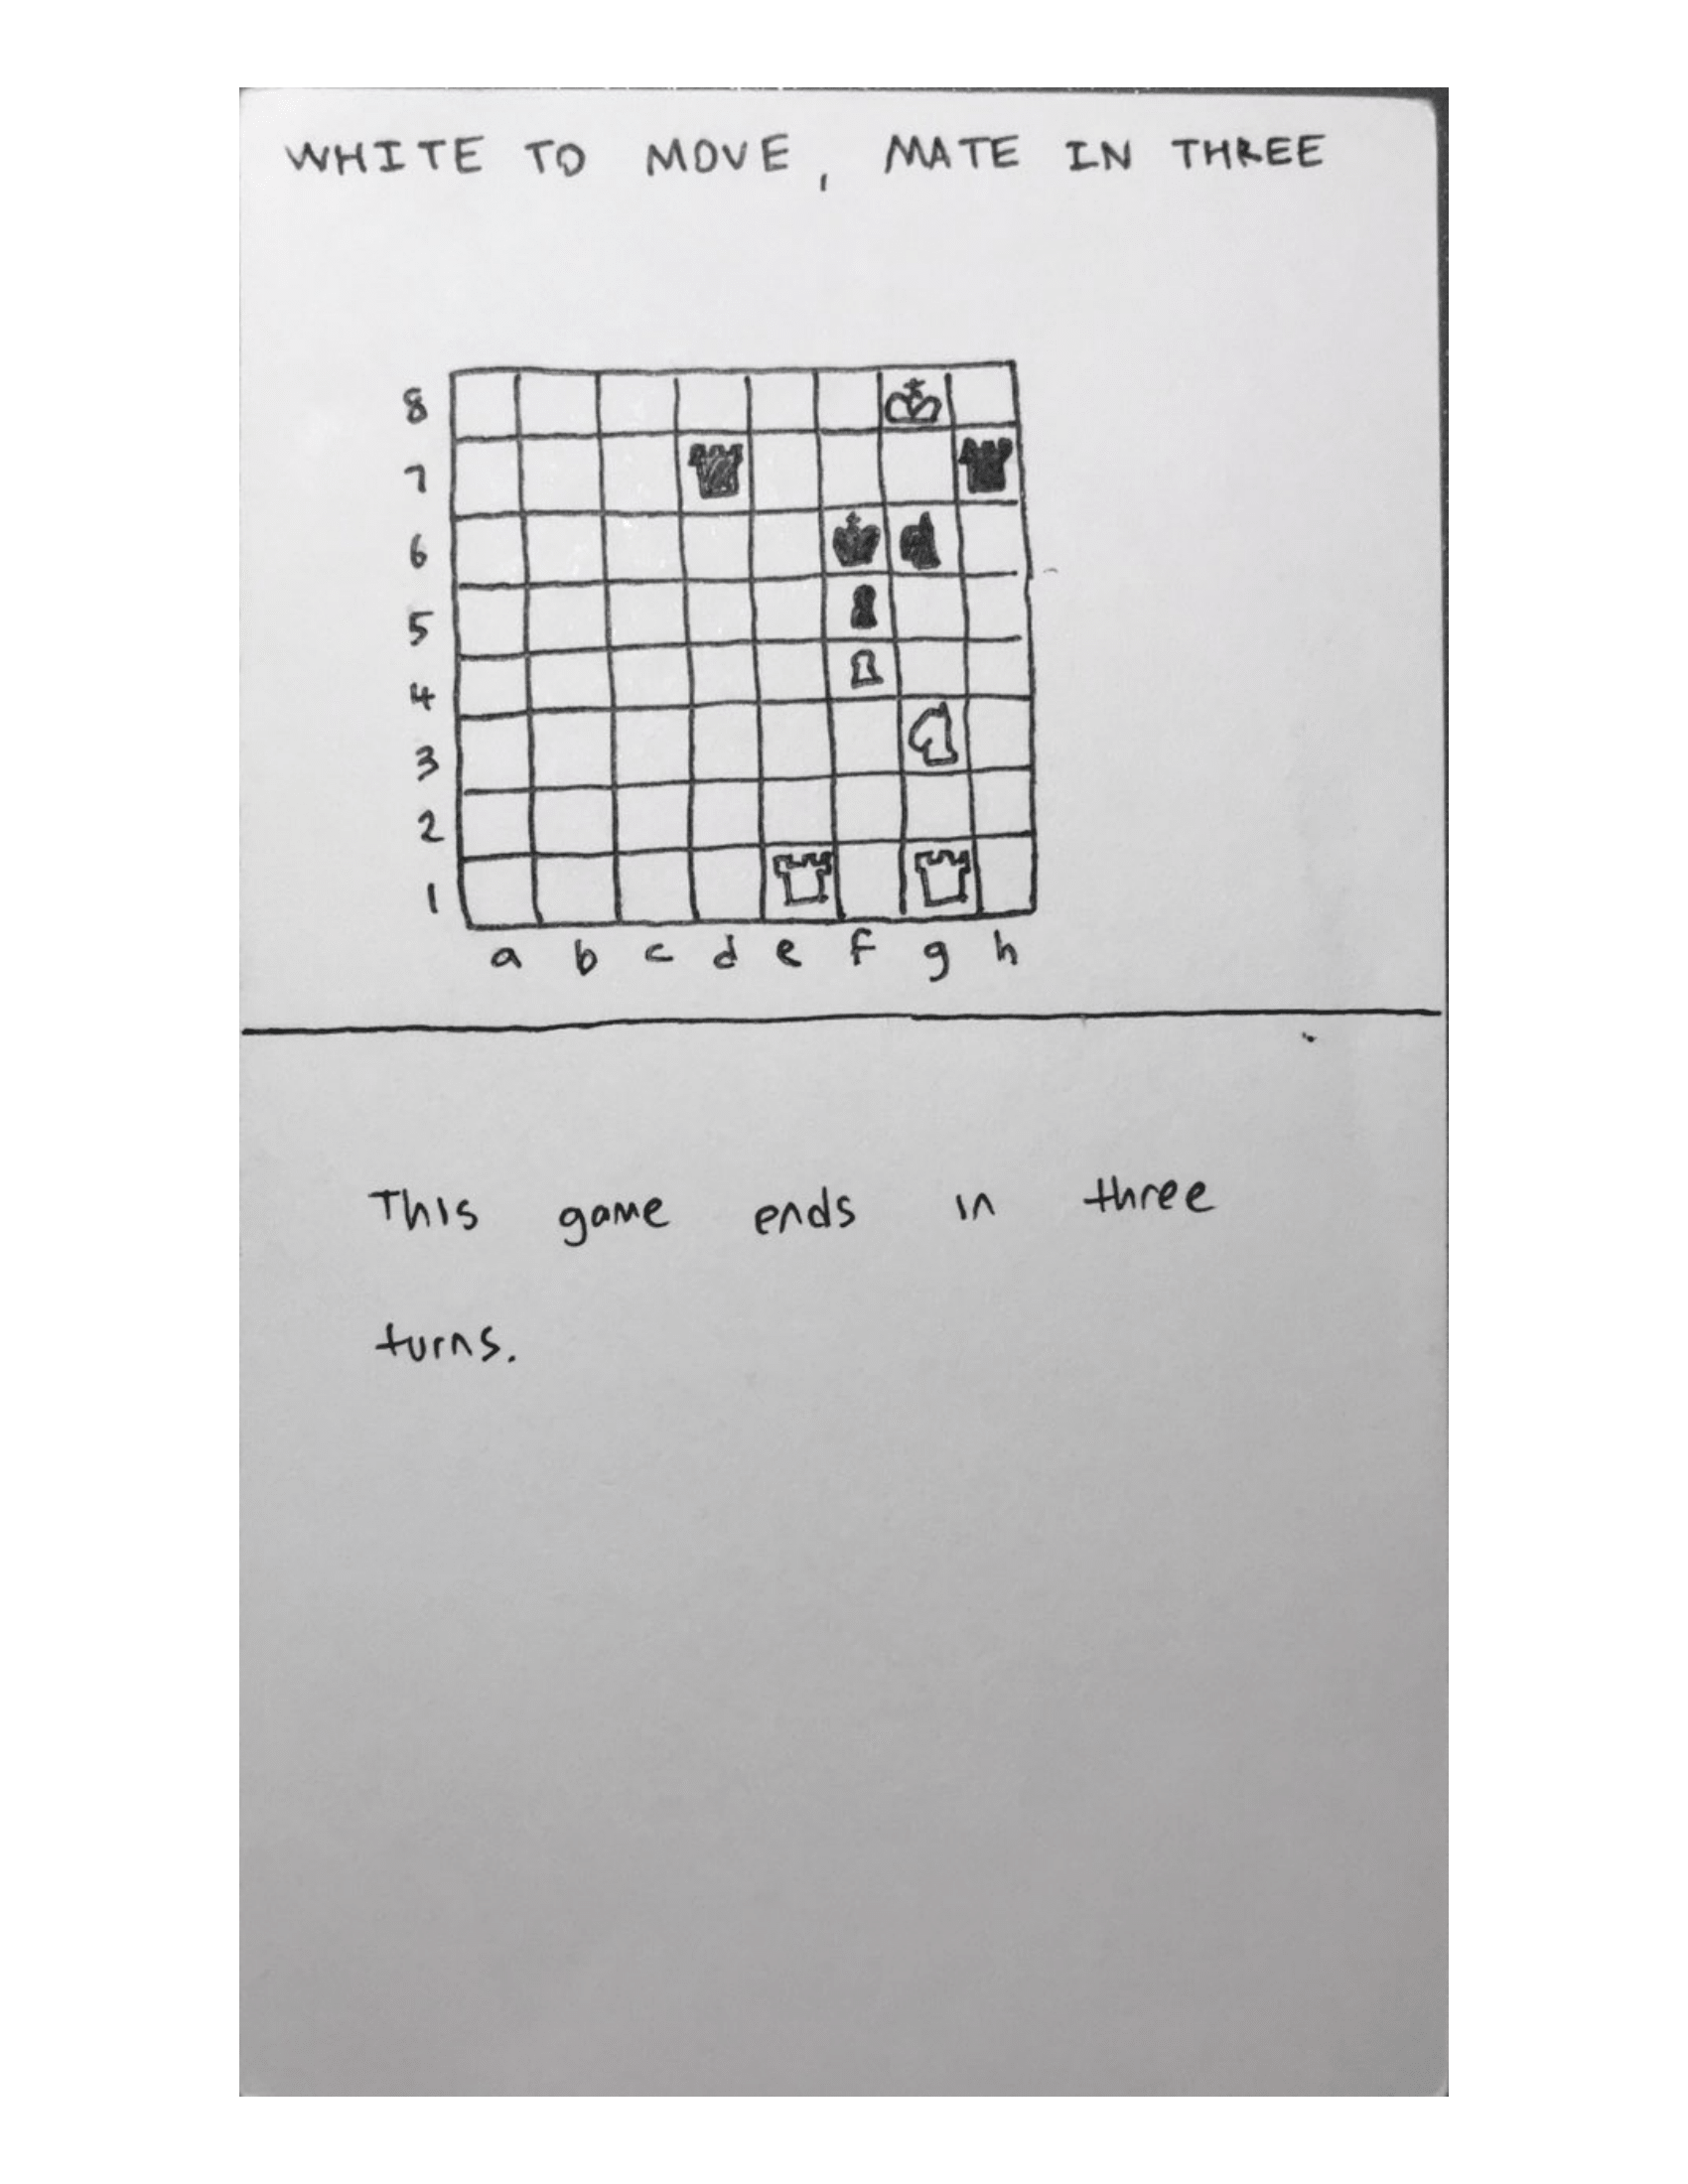 WHITE TO MOVE, MATE IN THREE
8
7
6
5
4
3
2
1
a b c d e f g h
This game ends in three
turns.